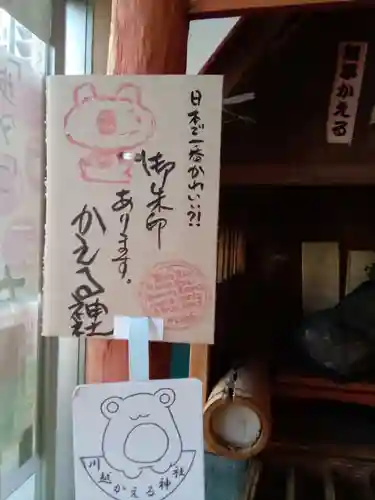 日本で一番かわいい?!
御朱印
あります。
かえる神社
無事かえる
川越
かえる神社